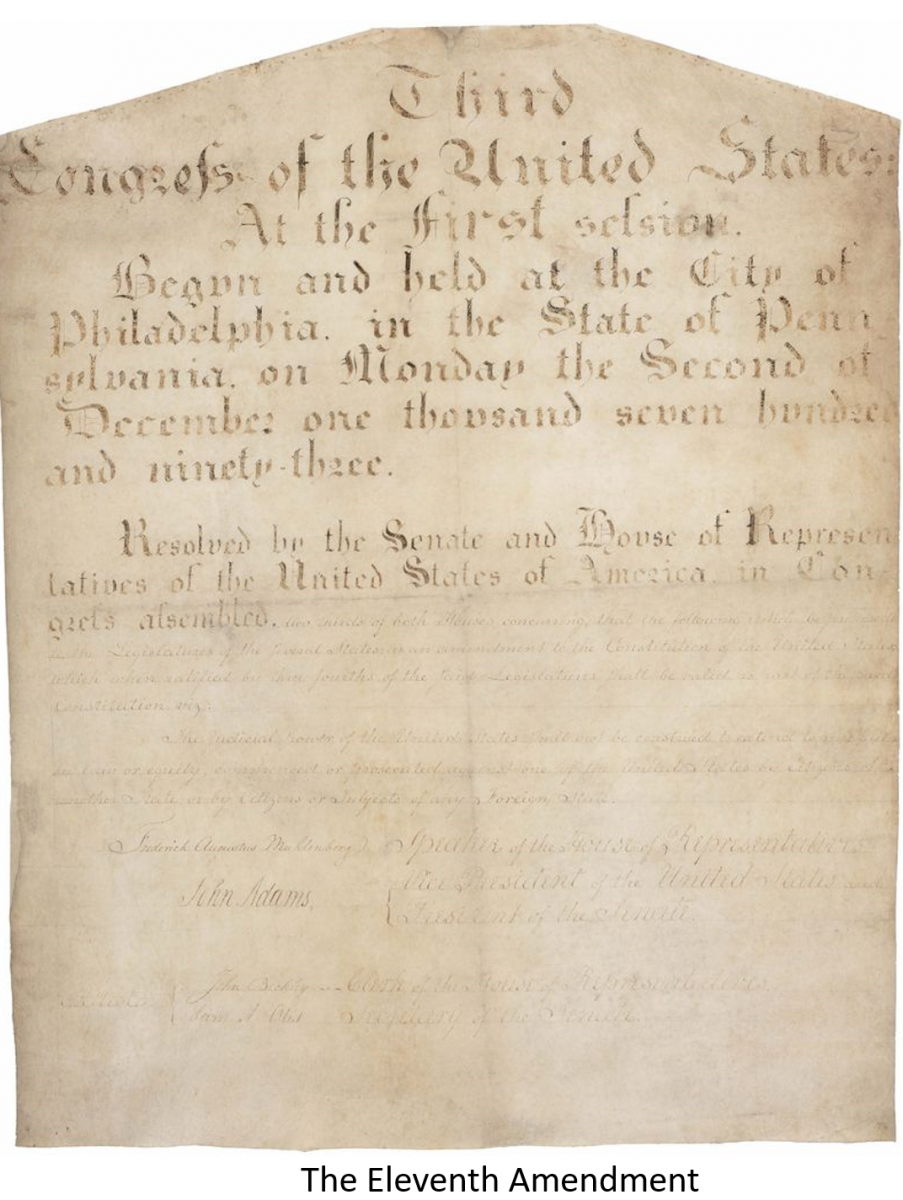 Third
Congreſs of the United States:
At the First seſsion.
Begun and held at the City of
Philadelphia, in the State of Penn
sylvania, on Monday the Second of
December one thousand seven hundred
and ninety-three.
Resolved by the Senate and House of Represen
tatives of the United States of America, in Con-
greſs aſsembled, two thirds of both Houses concurring, that the following
to the Legislatures of the several States as an amendment to the Constitution of the United States
which when ratified by three fourths of the said Legislatures shall be valid as part of the said
Constitution, viz.
The Judicial power of the United States shall not be construed to extend to any suit
in law or equity, commenced or prosecuted against one of the United States by Citizens of
another State, or by Citizens or Subjects of any Foreign State.
Frederick Augustus Muhlenberg Speaker of the House of Representatives
John Adams, Vice President of the United States and
President of the Senate.
John Beckley Clerk of the House of Representatives.
Sam. A. Otis Secretary of the Senate.
The Eleventh Amendment